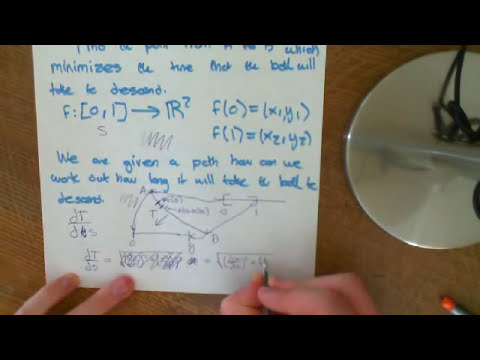 Find the path from A to B which
minimizes the time that the ball will
take to descend.
f: [0,1] → ℝ² f(0) = (x₁,y₁)
S f(1) = (x₂,y₂)
We are given a path how can we
work out how long it will take the ball to
descend.
A
0 1
T
B
dT
ds
dT/ds = =